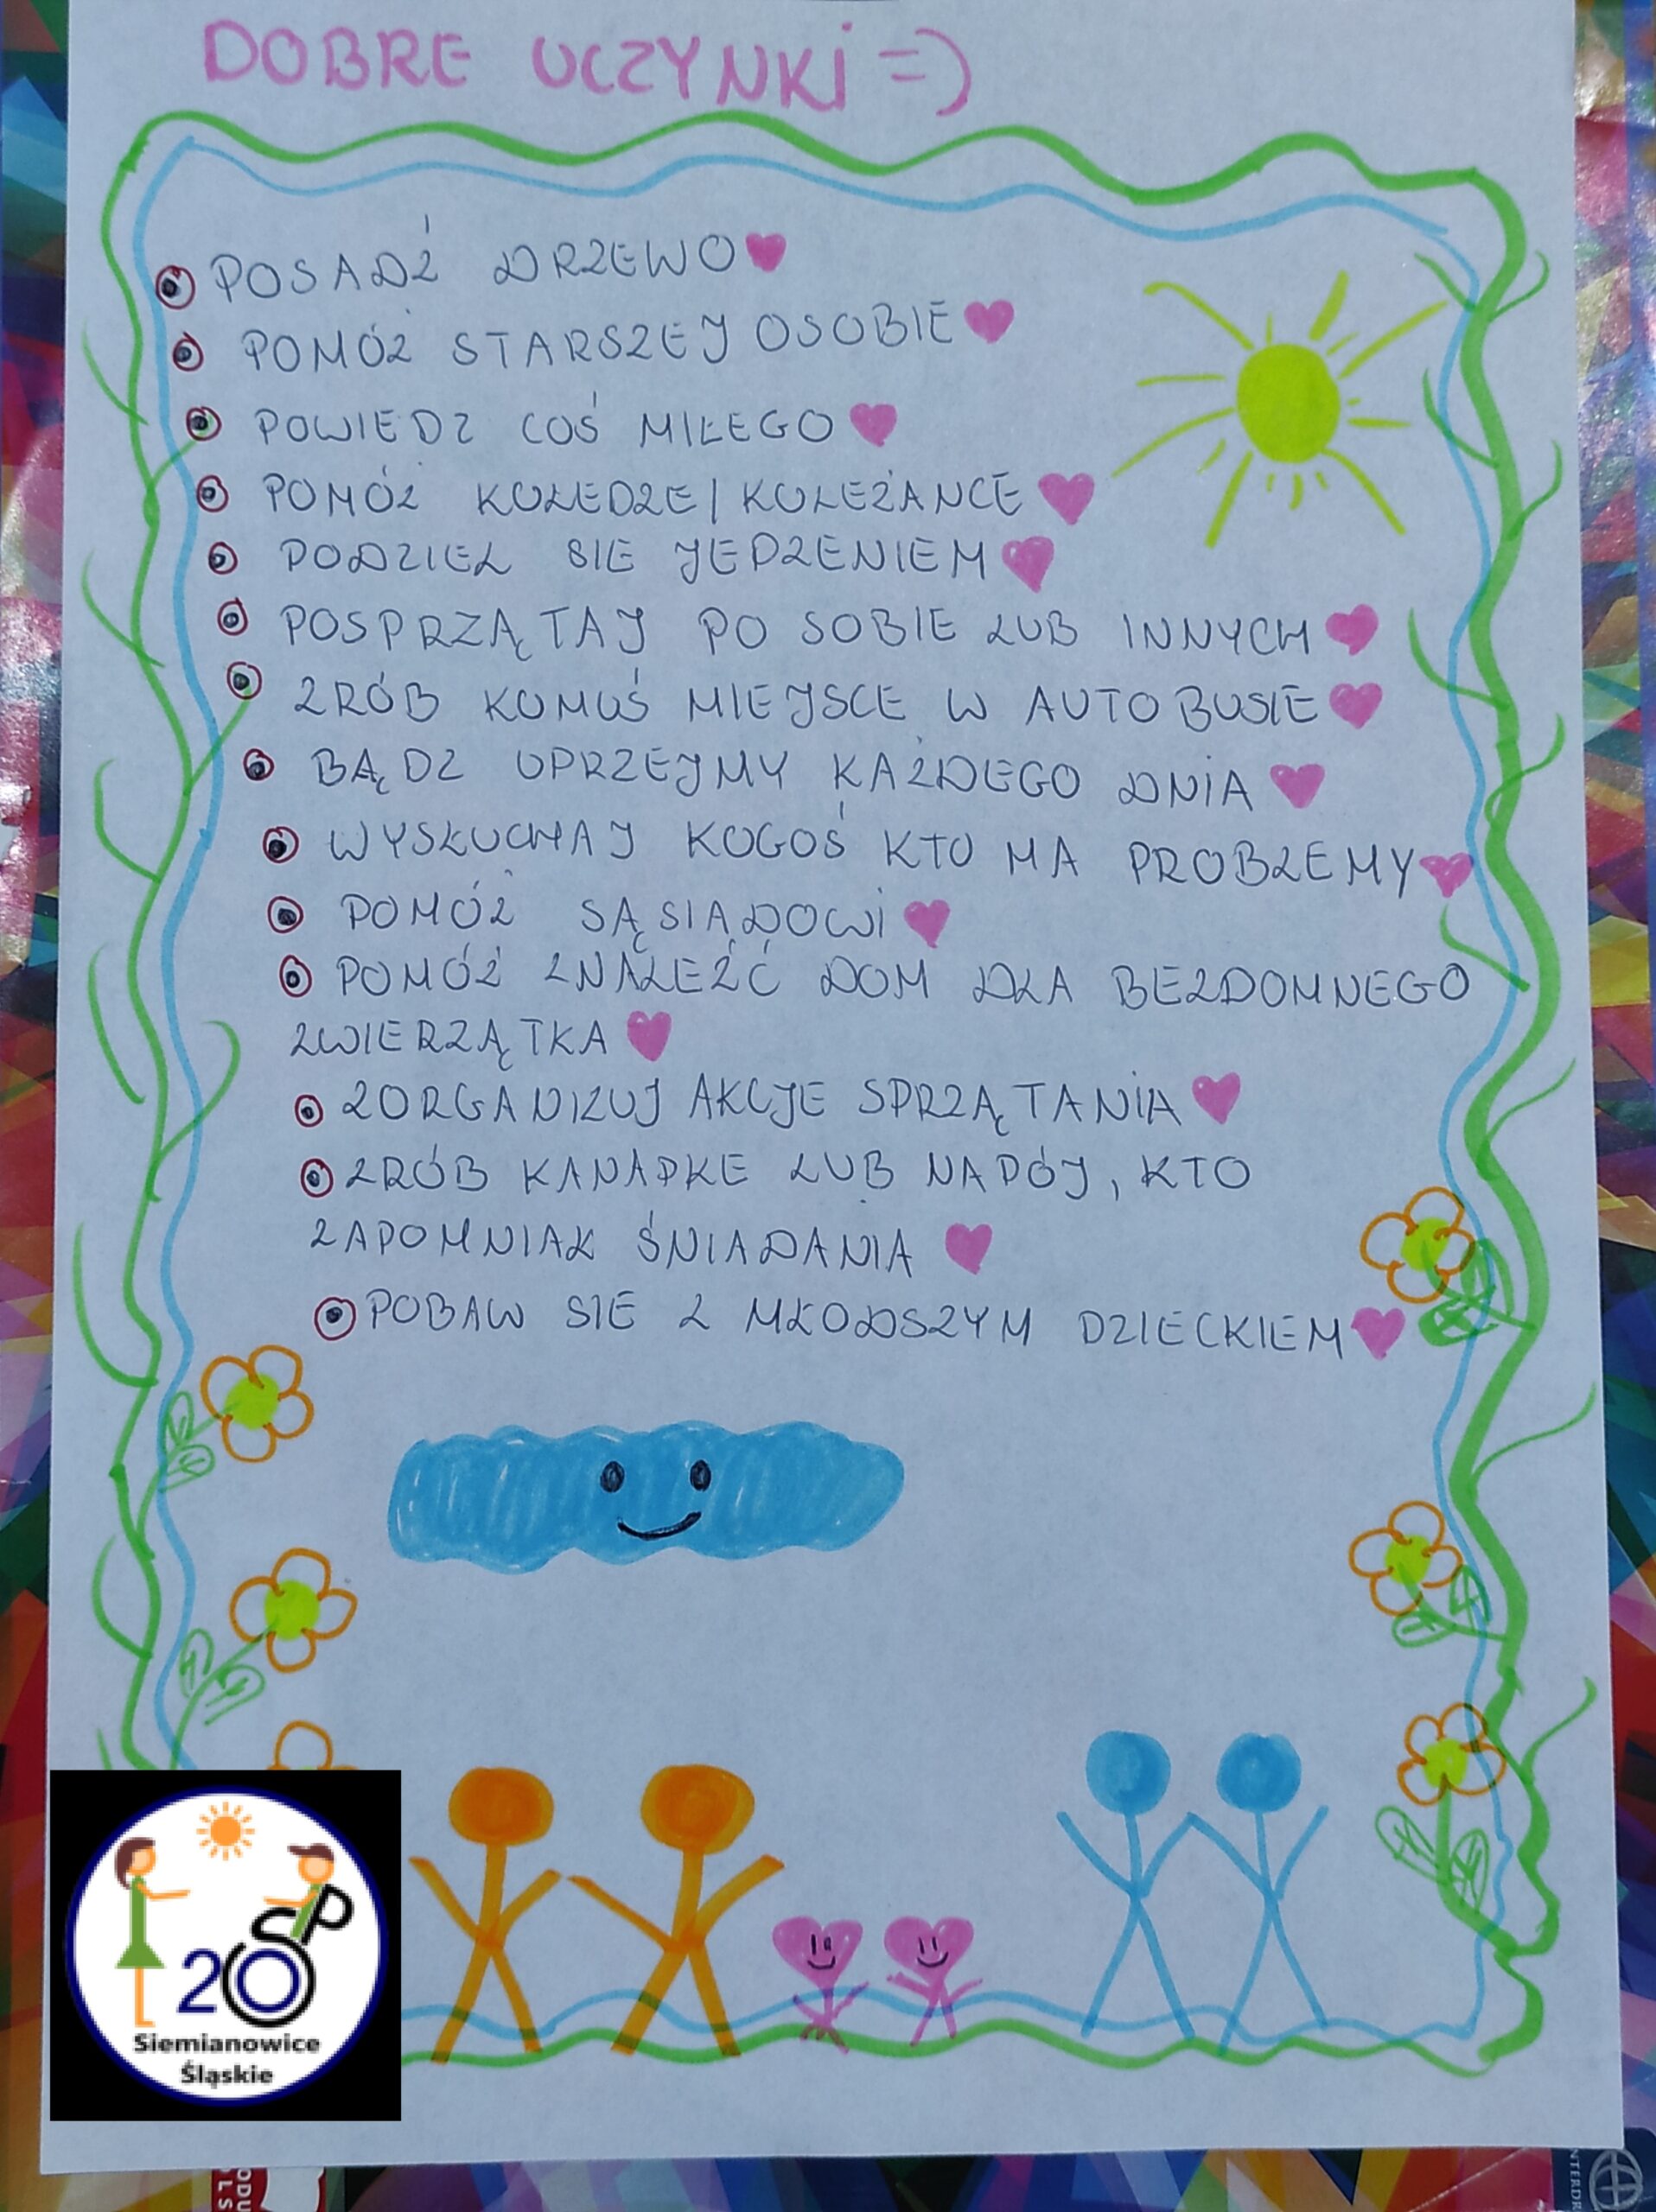 DOBRE UCZYNKI =)
POSADŹ DRZEWO
POMÓŻ STARSZEJ OSOBIE
POWIEDZ COŚ MIŁEGO
POMÓŻ KOLEDZE/KOLEŻANCE
PODZIEL SIE JEDZENIEM
POSPRZĄTAJ PO SOBIE LUB INNYCH
ZRÓB KOMUŚ MIEJSCE W AUTOBUSIE
BĄDZ UPRZEJMY KAŻDEGO DNIA
WYSŁUCHAJ KOGOŚ KTO MA PROBLEMY
POMÓŻ SĄSIADOWI
POMÓŻ ZNALEŹĆ DOM DLA BEZDOMNEGO
ZWIERZĄTKA
ZORGANIZUJ AKCJE SPRZĄTANIA
ZRÓB KANAPKE LUB NAPÓJ, KTO
ZAPOMNIAŁ ŚNIADANIA
POBAW SIE Z MŁODSZYM DZIECKIEM
SP
20
Siemianowice
Śląskie